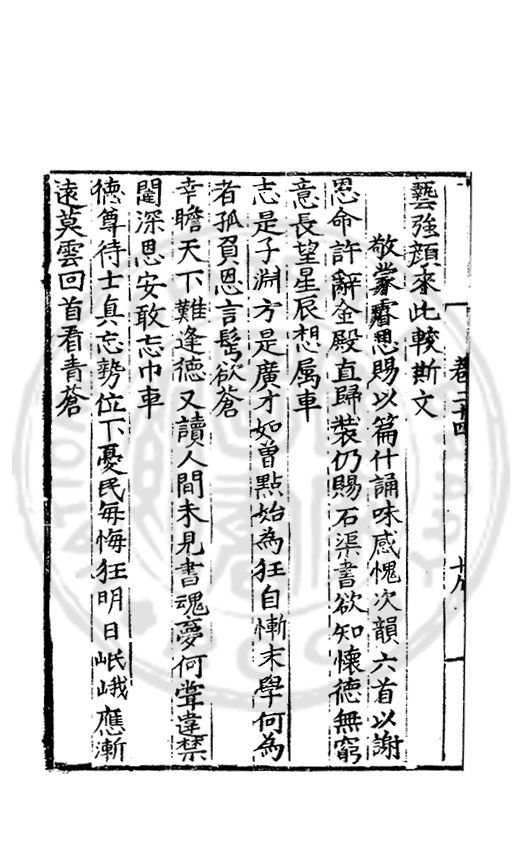 卷二十四
十八
藝強顔來此較斯文
敬蒙睿思賜以篇什誦味感愧次韻六首以謝
恩命許辭金殿直歸裝仍賜石渠書欲知懷德無窮
意長望星辰想属車
志是子淵方是廣才如曾點始為狂自慚末學何為
者孤負恩言髩欲蒼
幸瞻天下難逢德又讀人間未見書魂夢何嘗違禁
闥深恩安敢忘巾車
德尊待士真忘勢位下憂民每悔狂明日岷峨應漸
遠莫雲回首看青蒼